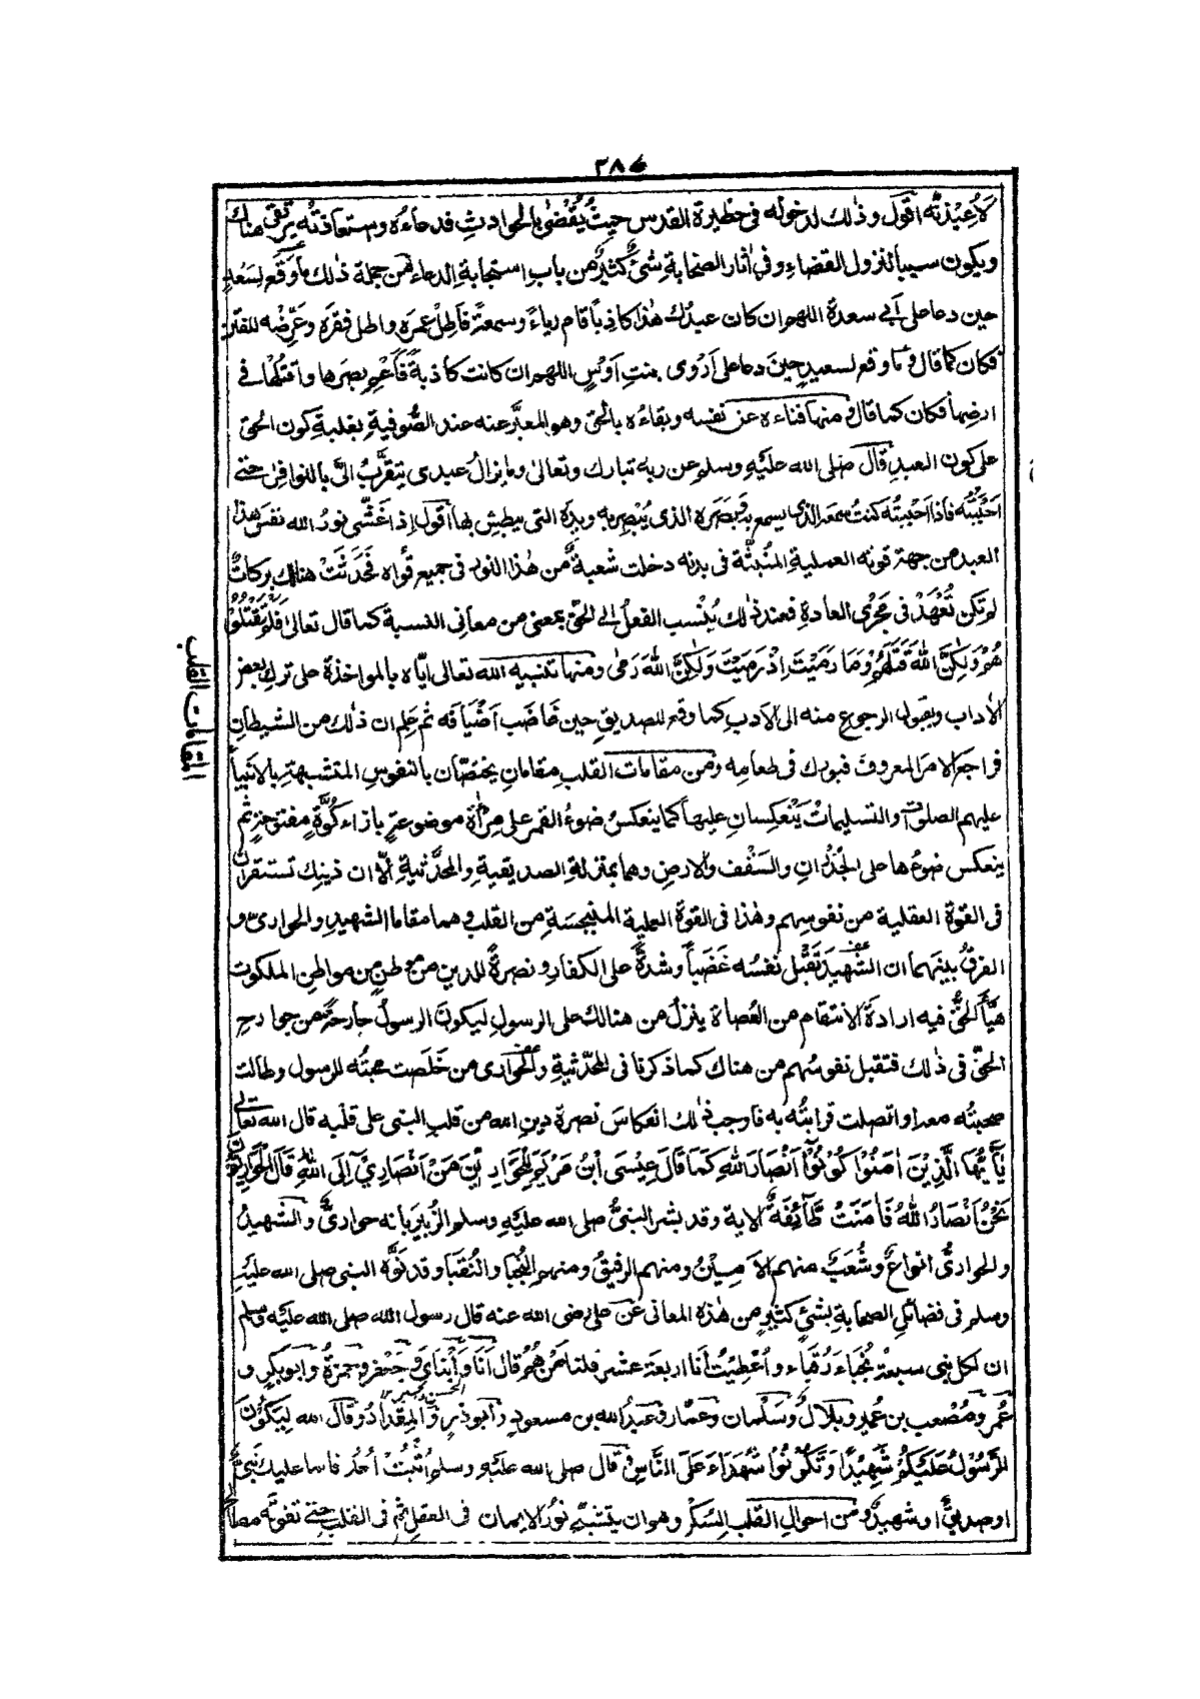 ٣٨٥
لأعيذنّه أقول وذٰلك لدخوله في حظيرة القدس حيث يُقْضىٰ بالحوادثِ فدعاءُه واستعاذتُه يرتقي هناك
ويكون سببا لنزول القضاءِ وفي اٰثار الصحابةِ شئٌ كثيرٌ من باب استجابةِ الدعاء فمن جملة ذٰلك ما وقع لسعدٍ
حين دعا على أبي سعدة اللهم ان كان عبدُك هٰذا كاذباً قام رياءً وسمعةً فأطِلْ عمرَه واطل فقره وعَرِّضْه للفتن
فكان كما قال وما وقع لسعيدٍ حينَ دعا على أرْوى بنتِ أوْسٍ اللهم ان كانت كاذبةً فأعمِ بصرها واقتُلْها في
ارضها فكان كما قال ومنها فناءه عن نفسه وبقاءُه بالحق وهو المعبَّر عنه عند الصُّوفيةِ بغلبةِ كون الحق
على كون العبد قال صلى الله عليه وسلم عن ربه تبارك وتعالىٰ وما يزالُ عبدي يتقرَّبُ الىَّ بالنوافل حتى
أحْبَبْتُه فاذا أحْبَبْتُه كنتُ سمعَه الذي يسمع به وبَصَرَه الذي يُبْصِر به ويدَه التي يبطش بها أقول إذا غَشَّى نورُ الله نفسَ هذا
العبد من جهة قوته العملية المُنْبَثَّة في بدنه دخلت شعبةٌ من هٰذا النور في جميع قُواه فحَدَثَتْ هنالك بركاتٌ
لم تكن تُعْهَدُ في مَجْرَى العادة فعند ذٰلك يُنْسب الفعلُ إلى الحق بمعنى من معاني النسبة كما قال تعالىٰ فَلَمْ تَقْتُلُوْ
هُمْ وَلٰكِنَّ اللهَ قَتَلَهُمْ وَمَا رَمَيْتَ إِذْ رَمَيْتَ وَلٰكِنَّ اللهَ رَمٰى ومنها تنبيه الله تعالى ايّاه بالمواخذة على تركِ بعض
الاٰداب وبقبول الرجوع منه الى الأدب كما وقع للصديق حين غاضب أضْيافَه ثم علم ان ذٰلك من الشيطانِ
فراجع الامرَ المعروفَ فبورك في طعامه ومن مقامات القلب مقامانِ يختصّان بالنفوس المتشبهةِ بالانبياءِ
عليهم الصلوٰت والتسليمات يَنْعكِسانِ عليها كما ينعكسُ ضوءُ القمر على مِراٰةٍ موضوعةٍ بازاء كُوَّةٍ مفتوحةٍ ثم
ينعكس ضوءُها على الجُدْرانِ والسَّقْف والارضِ وهما بمنزلةِ الصديقيةِ والمحدَّثيةِ إلّا ان ذينك تستقران
في القوة العقلية من نفوسهم وهٰذا في القوة العملية المنبجسةِ من القلب وهما مقاما الشهيدِ والحواريّ و
الفرقُ بينهما ان الشهيدَ تَقْبل نفسُه غَضَباً وشدةً على الكفار ونصرةً للدين من موطنٍ من مواطن الملكوت
هيّأ الحقُّ فيه ارادةَ الانتقام من العُصاة ينزلُ من هنالك على الرسولِ ليكونَ الرسولُ جارحةً من جوارحِ
الحقِّ في ذٰلك فتقبل نفوسُهم من هناك كما ذكرنا في المحدَّثيةِ والحواري من خَلَصت محبتُه للرسول وطالت
صحبتُه معه او اتصلت قرابتُه به فاوجب ذٰلك انعكاسَ نصرة دين الله من قلب النبي على قلبه قال الله تعالى
يٰٓأَيُّهَا الَّذِيْنَ اٰمَنُوْا كُوْنُوْٓا أَنْصَارَ اللهِ كَمَا قَالَ عِيْسَى ابْنُ مَرْيَمَ لِلْحَوَارِيّٖنَ مَنْ أَنْصَارِيٓ إِلَى اللهِ قَالَ الْحَوَارِيُّوْنَ
نَحْنُ أَنْصَارُ اللهِ فَاٰمَنَتْ طَّآئِفَةٌ الاية وقد بشر النبيُّ صلى الله عليه وسلم الزُّبيرَ بانه حواريٌّ والشهيدُ
والحواريُّ انواعٌ وشُعَبٌ منهم الأمينُ ومنهم الرفيقُ ومنهم النُّجَبا والنُّقَبا وقد نَوَّه النبي صلى الله عليه
وسلم في فضائل الصحابةِ بشيٍ كثيرٍ من هٰذه المعاني عن علي رضي الله عنه قال رسول الله صلى الله عليه وسلم
ان لكل نبي سبعةَ نُجَباءَ رُقَباءَ وأُعْطِيْتُ أنا اربعةَ عشر قلنا مَنْ هُمْ قال أنَا وَأَبْنَايَ وجَعْفر وحمزةُ وابوبكرٍ و
عُمر ومُصْعب بن عُمير وبلالٌ وسَلْمان وعمّار وعبدُ الله بن مسعودٍ وأبو ذرٍ والمِقْدادُ وقال الله لِيَكُوْنَ
الرَّسُوْلُ عَلَيْكُمْ شَهِيْدًا وَتَكُوْنُوْا شُهَدَاءَ عَلَى النَّاسِ قال صلى الله عليه وسلم اُثْبُتْ أُحُدُ فانما عليك نبيٌّ
او صديقٌ او شهيدٌ ومن احوال القلب السُّكْر وهو ان يتشبَّح نورُ الايمان في العقلِ ثم في القلب حتى تفوتَه مصالح
مقامات القلب